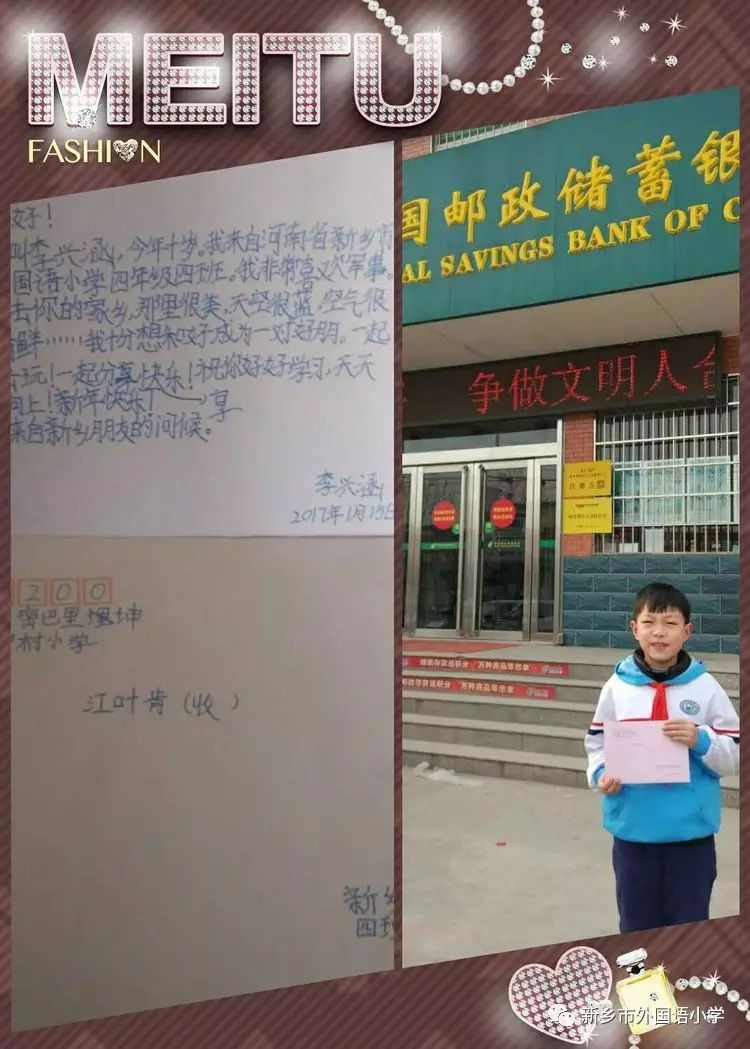 MEITU
FASHION
好！
叫李兴涵，今年十岁。我来自河南省新乡市
国语小学四年级四班。我非常喜欢军事。
去你的家乡，那里很美，天空很蓝，空气很
鲜……我十分想和你成为一对好朋。一起
玩！一起分享快乐！祝你好好学习，天天
向上！新年快乐！享
来自新乡朋友的问候。
李兴涵
2017年1月15日
200
巴里埋坤
村小学
江叶肯（收）
新乡
四班
国邮政储蓄银
AL SAVINGS BANK OF C
争做文明人
邮政存款送积分 万种商品等您拿
邮政存款送积分 万种商品等您拿
新乡市外国语小学